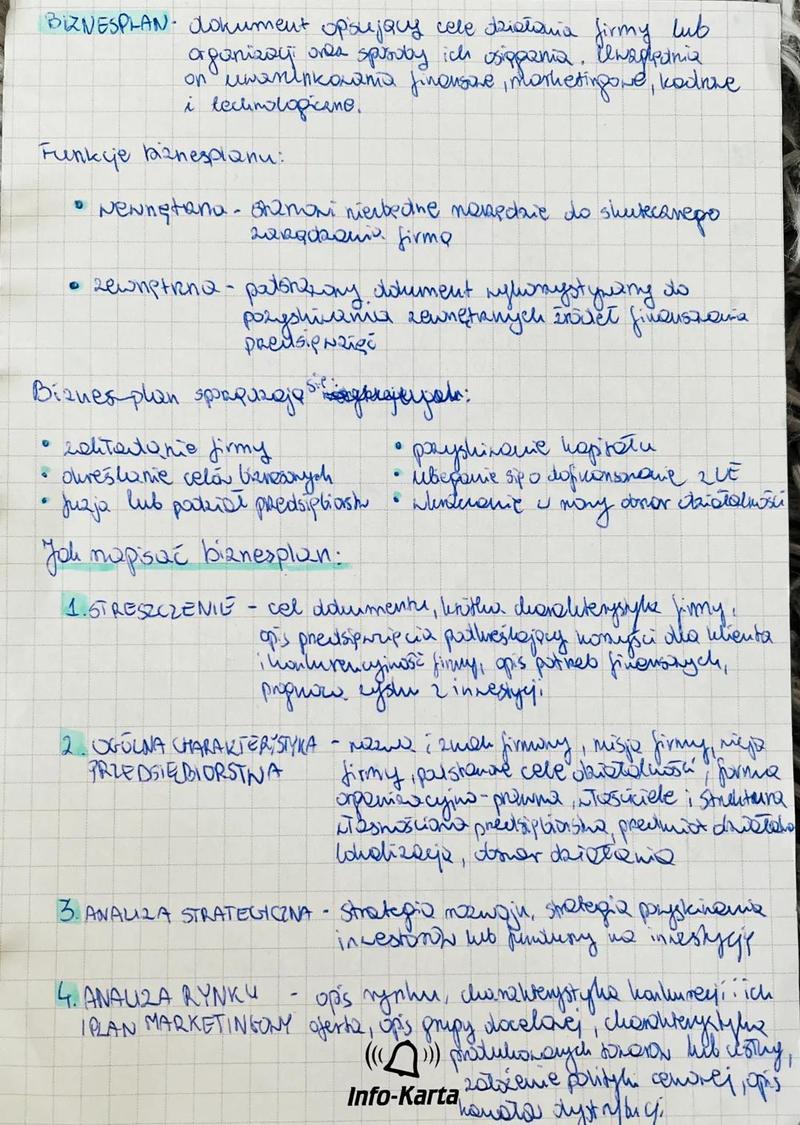 BIZNESPLAN - dokument opisujący cele działania firmy lub
organizacji oraz sposoby ich osiągania. Uwzględnia
on uwarunkowania finansowe, marketingowe, kadrowe
i technologiczne.
Funkcje biznesplanu:
• wewnętrzna - stanowi niezbędne narzędzie do skutecznego
zarządzania firmą
• zewnętrzna - podstawowy dokument wykorzystywany do
pozyskiwania zewnętrznych źródeł finansowania
przedsięwzięć
Biznes-plan sporządzają się:
• zakładanie firmy
• określanie celów biznesowych
• fuzja lub podział przedsiębiorstw
• pozyskiwanie kapitału
• ubieganie się o dofinansowanie z UE
• wkraczanie w nowy obszar działalności
Jak napisać biznesplan:
1. STRESZCZENIE - cel dokumentu, krótka charakterystyka firmy,
opis przedsięwzięcia podkreślający korzyści dla klienta
i konkurencyjność firmy, opis potrzeb finansowych,
prognoza zysku z inwestycji
2. OGÓLNA CHARAKTERYSTYKA - nazwa i znak firmowy, misja firmy, wizja
PRZEDSIĘBIORSTWA firmy, podstawowe cele działalności, forma
organizacyjno-prawna, właściciele i struktura
własnościowa przedsiębiorstwa, przedmiot działania
lokalizacja, obszar działania
3. ANALIZA STRATEGICZNA - strategia rozwoju, strategia pozyskiwania
inwestorów lub funduszy na inwestycję
4. ANALIZA RYNKU - opis rynku, charakterystyka konkurencji i ich
I PLAN MARKETINGOWY oferta, opis grupy docelowej, charakterystyka
produkowanych towarów lub usług,
założenie polityki cenowej, opis
kanału dystrybucji
Info-Karta